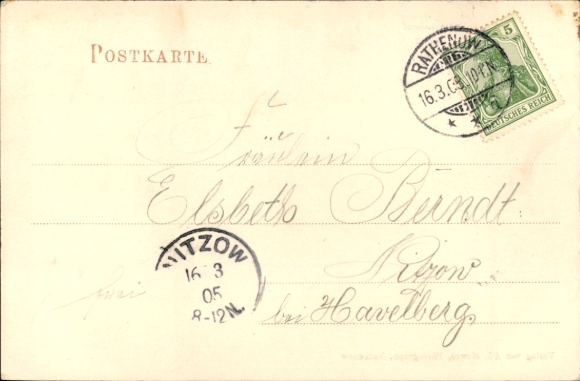 POSTKARTE
RATHENOW
16.3.05
5
DEUTSCHES REICH
Fräulein
Elsbeth Berndt
NITZOW
16 3
05
8-12N.
Nitzow
frei
bei Havelberg